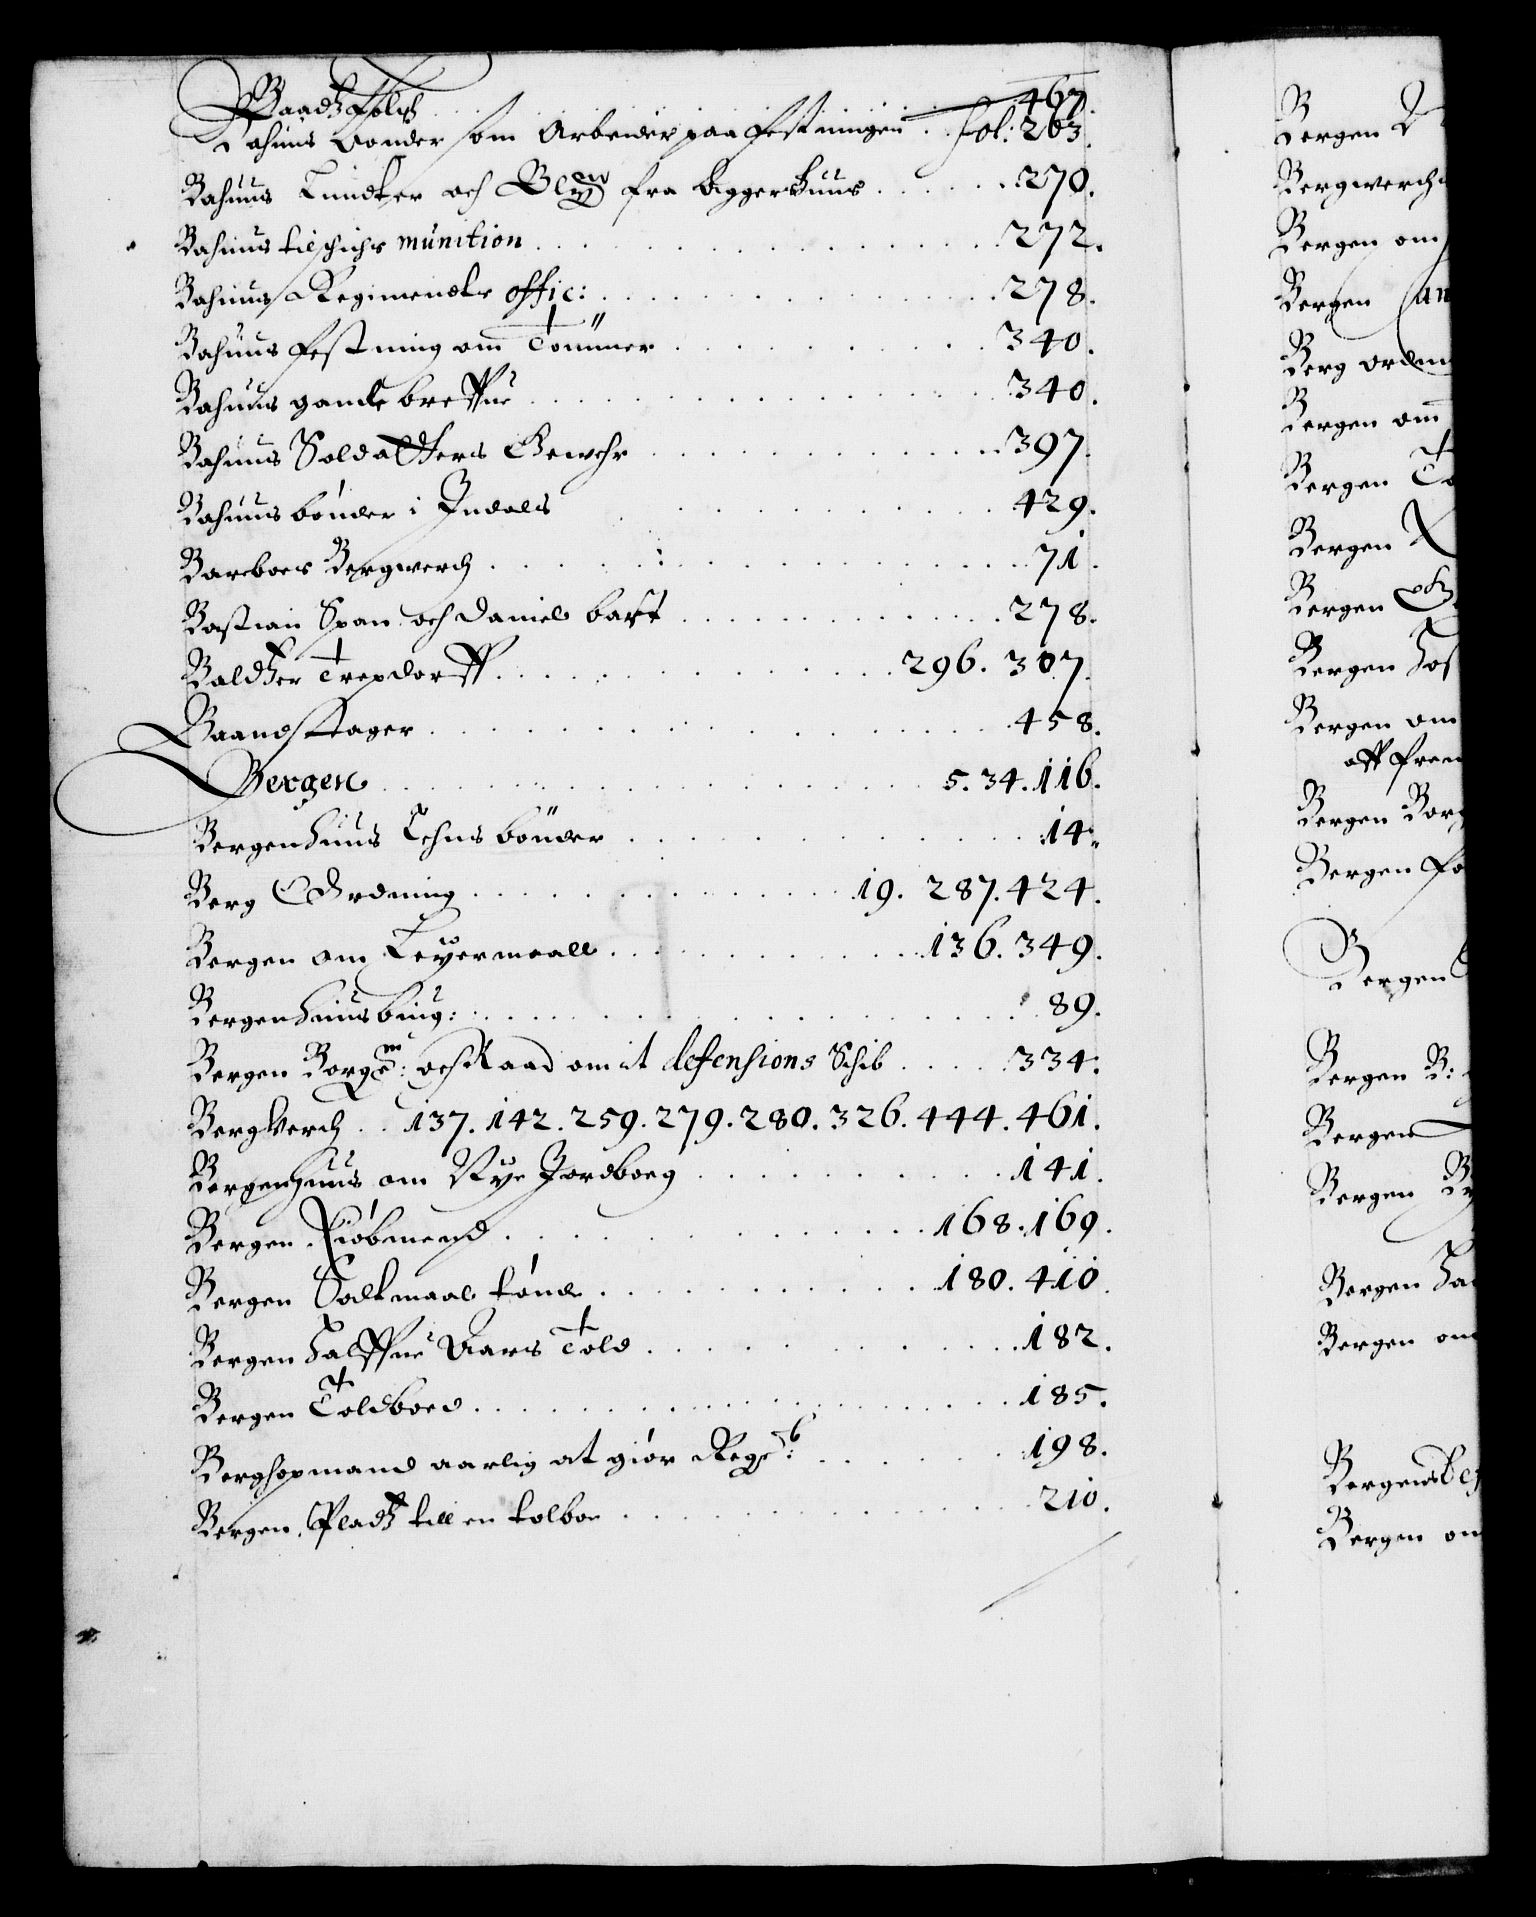 Baadtz folch . . . 467.
Bahuus bønder som Arbeider paa festningen . . fol: 263.
Bahuus Lundter och Bly fra Aggershuus . . . 270.
Bahuus tilschichs munition . . . 272.
Bahuus Regimendts offic: . . . 278.
Bahuus festning om Tømmer . . . 340.
Bahuus gamle breffue . . . 340.
Bahuus Soldatters Gewehr . . . 397.
Bahuus bønder i Indals 429.
Barboes Bergwerch . . . 71.
Bastian Span och Daniel bart . . . 278.
Baldtzer Trepdorff . . . 296. 307.
Baandstager . . . 458.
Bergen . . . 5. 34. 116.
Bergenhuus Lehns bønder . . . 14.
Berg Ordning . . . 19. 287. 424.
Bergen om Leyermaall . . . 136. 349.
Bergenhuus biug: . . . 89.
Bergen Borgem: och Raad om it defensions Schib . . . 334.
Bergverch . . 137. 142. 259. 279. 280. 326. 444. 461.
Bergenhuus om Nye Jordbog . . . 141.
Bergen Kiøbmend . . . 168. 169.
Bergen Saltmaal tønde . . . 180. 410
Bergen halffue Aars Told . . . 182.
Bergen Toldboed . . . 185.
Berghopmand aarlig at giør Regsb: . . . 198.
Bergen Pladtz till en tolboe . . . 210.
Bergen
Bergwerch
Bergen om
Bergen
Berg ordni
Bergen om
Bergen To
Bergen
Bergen och
Bergen Hos
Bergen om
aff frem
Bergen Borg
Bergen fo
Bergen
Bergen B:
Bergen
Bergen
Bergen Ha
Bergen om
Bergens
Bergen om